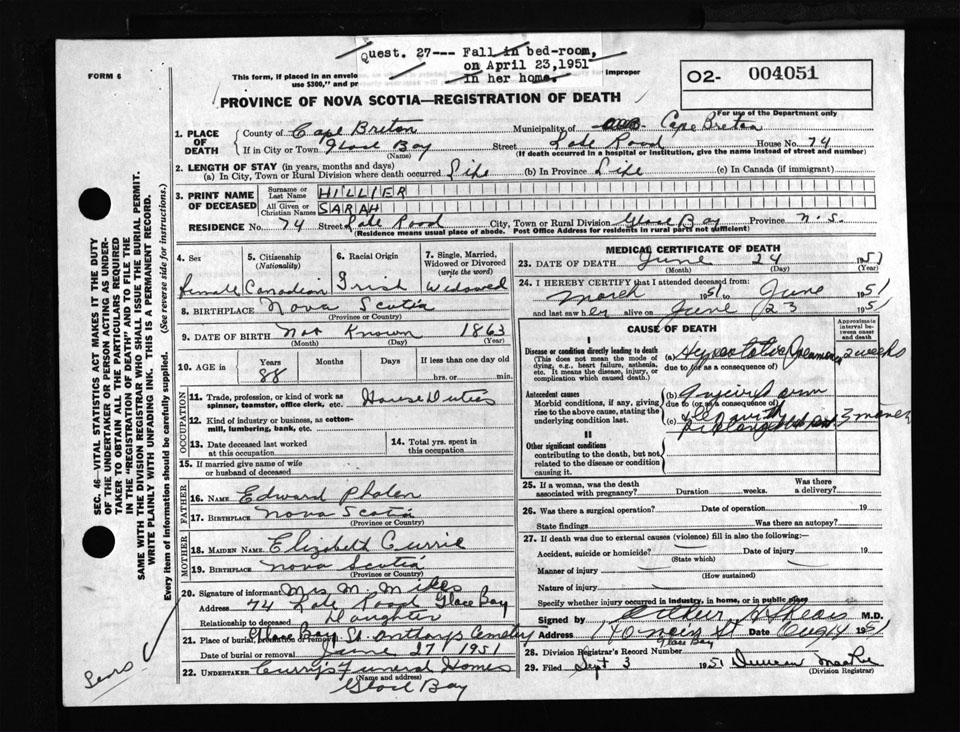 Quest. 27--- Fall in bed-room,
on April 23,1951
in her home.
FORM 6
This form, if placed in an envelo
use $300," and pr
improper
O2- 004051
For use of the Department only
PROVINCE OF NOVA SCOTIA—REGISTRATION OF DEATH
1. PLACE OF DEATH
County of Cape Breton Municipality of Cape Breton
If in City or Town Glace Bay Street Lake Road House No. 74
(Name) (If death occurred in a hospital or institution, give the name instead of street and number)
2. LENGTH OF STAY (in years, months and days)
(a) In City, Town or Rural Division where death occurred Life (b) In Province Life (c) In Canada (if immigrant)
3. PRINT NAME OF DECEASED
Surname or Last Name HILLIER
All Given or Christian Names SARAH
RESIDENCE No. 74 Street Lake Road City, Town or Rural Division Glace Bay Province N.S.
(Residence means usual place of abode. Post Office Address for residents in rural parts not sufficient)
4. Sex 5. Citizenship (Nationality) 6. Racial Origin 7. Single, Married, Widowed or Divorced (write the word)
female Canadian Irish Widowed
8. BIRTHPLACE Nova Scotia
(Province or Country)
9. DATE OF BIRTH Not Known 1863
(Month) (Day) (Year)
10. AGE in Years Months Days If less than one day old
88 hrs. or min.
OCCUPATION
11. Trade, profession, or kind of work as spinner, teamster, office clerk, etc. House Duties
12. Kind of industry or business, as cotton-mill, lumbering, bank, etc.
13. Date deceased last worked at this occupation 14. Total yrs. spent in this occupation
15. If married give name of wife or husband of deceased
FATHER
16. NAME Edward Phalen
17. BIRTHPLACE Nova Scotia
(Province or Country)
MOTHER
18. MAIDEN NAME Elizabeth Currie
19. BIRTHPLACE Nova Scotia
(Province or Country)
20. Signature of informant Mrs. M.
Address 74 Lake Road Glace Bay
Relationship to deceased Daughter
21. Place of burial, cremation or removal Glace Bay St. Anthonys Cemetery
Date of burial or removal June 27 1951
22. UNDERTAKER Curry's Funeral Home
(Name and address)
Glace Bay
MEDICAL CERTIFICATE OF DEATH
23. DATE OF DEATH June 24 1951
(Month) (Day) (Year)
24. I HEREBY CERTIFY that I attended deceased from
March 1951 to June 1951
and last saw her alive on June 23 1951
CAUSE OF DEATH
Approximate interval between onset and death
I
Disease or condition directly leading to death
(This does not mean the mode of dying, e.g., heart failure, asthenia, etc. It means the disease, injury, or complication which caused death.)
(a) Hypostatic Pneumonia 2 weeks
due to (or as a consequence of)
Antecedent causes
Morbid conditions, if any, giving rise to the above cause, stating the underlying condition last.
(b) Injured arm
due to (or as a consequence of)
(c) with prolonged 3 months
II
Other significant conditions
contributing to the death, but not related to the disease or condition causing it.
25. If a woman, was the death associated with pregnancy? Duration weeks. Was there a delivery?
26. Was there a surgical operation? Date of operation 19
State findings Was there an autopsy?
27. If death was due to external causes (violence) fill in also the following:
Accident, suicide or homicide? Date of injury 19
(State which)
Manner of injury
(How sustained)
Nature of injury
Specify whether injury occurred in industry, in home, or in public place
Signed by M.D.
Address 140 Main St Date Aug 14 1951
Glace Bay
28. Division Registrar's Record Number
29. Filed Sept 3 1951 Duncan
(Division Registrar)
SEC. 46—VITAL STATISTICS ACT MAKES IT THE DUTY
OF THE UNDERTAKER OR PERSON ACTING AS UNDER-
TAKER TO OBTAIN ALL THE PARTICULARS REQUIRED
IN THE "REGISTRATION OF DEATH" AND TO FILE THE
SAME WITH THE DIVISION REGISTRAR WHO SHALL ISSUE THE BURIAL PERMIT.
WRITE PLAINLY WITH UNFADING INK. THIS IS A PERMANENT RECORD.
Every item of information should be carefully supplied. (See reverse side for instructions.)